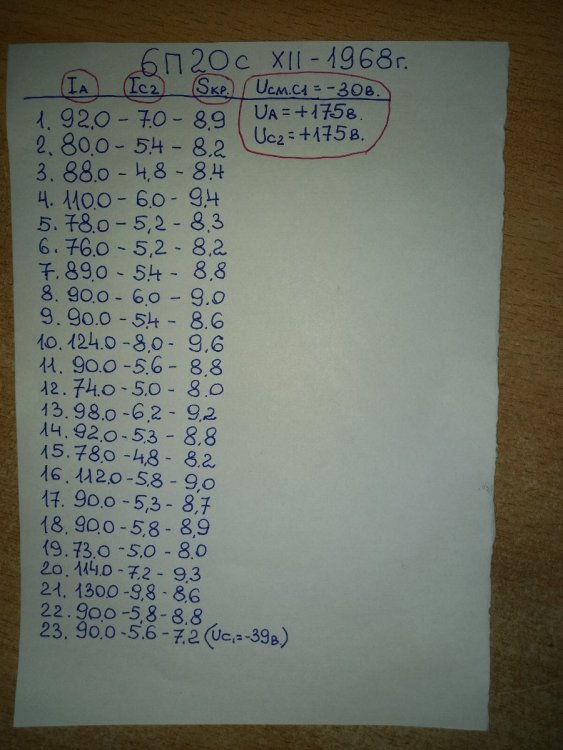 6П20с XII-1968г.
IА IС2 SКР. Uсм.с1=-30в.
UА=+175в.
UС2=+175в.
1. 92,0 - 7.0 - 8,9
2. 80.0 - 5.4 - 8.2
3. 88.0 - 4,8 - 8.4
4. 110.0 - 6.0 - 9.4
5. 78.0 - 5,2 - 8,3
6. 76.0 - 5,2 - 8,2
7. 89.0 - 5.4 - 8.8
8. 90.0 - 6.0 - 9.0
9. 90.0 - 5.4 - 8.6
10. 124.0 - 8,0 - 9,6
11. 90.0 - 5,6 - 8,8
12. 74.0 - 5.0 - 8.0
13. 98.0 - 6,2 - 9,2
14. 92.0 - 5,3 - 8,8
15. 78.0 - 4,8 - 8.2
16. 112,0 - 5,8 - 9,0
17. 90.0 - 5,3 - 8,7
18. 90.0 - 5,8 - 8,9
19. 73.0 - 5.0 - 8.0
20. 114.0 - 7.2 - 9,3
21. 130.0 - 9,8 - 8,6
22. 90.0 - 5,8 - 8.8
23. 90.0 - 5.6 - 7.2 (UС1=-39в)